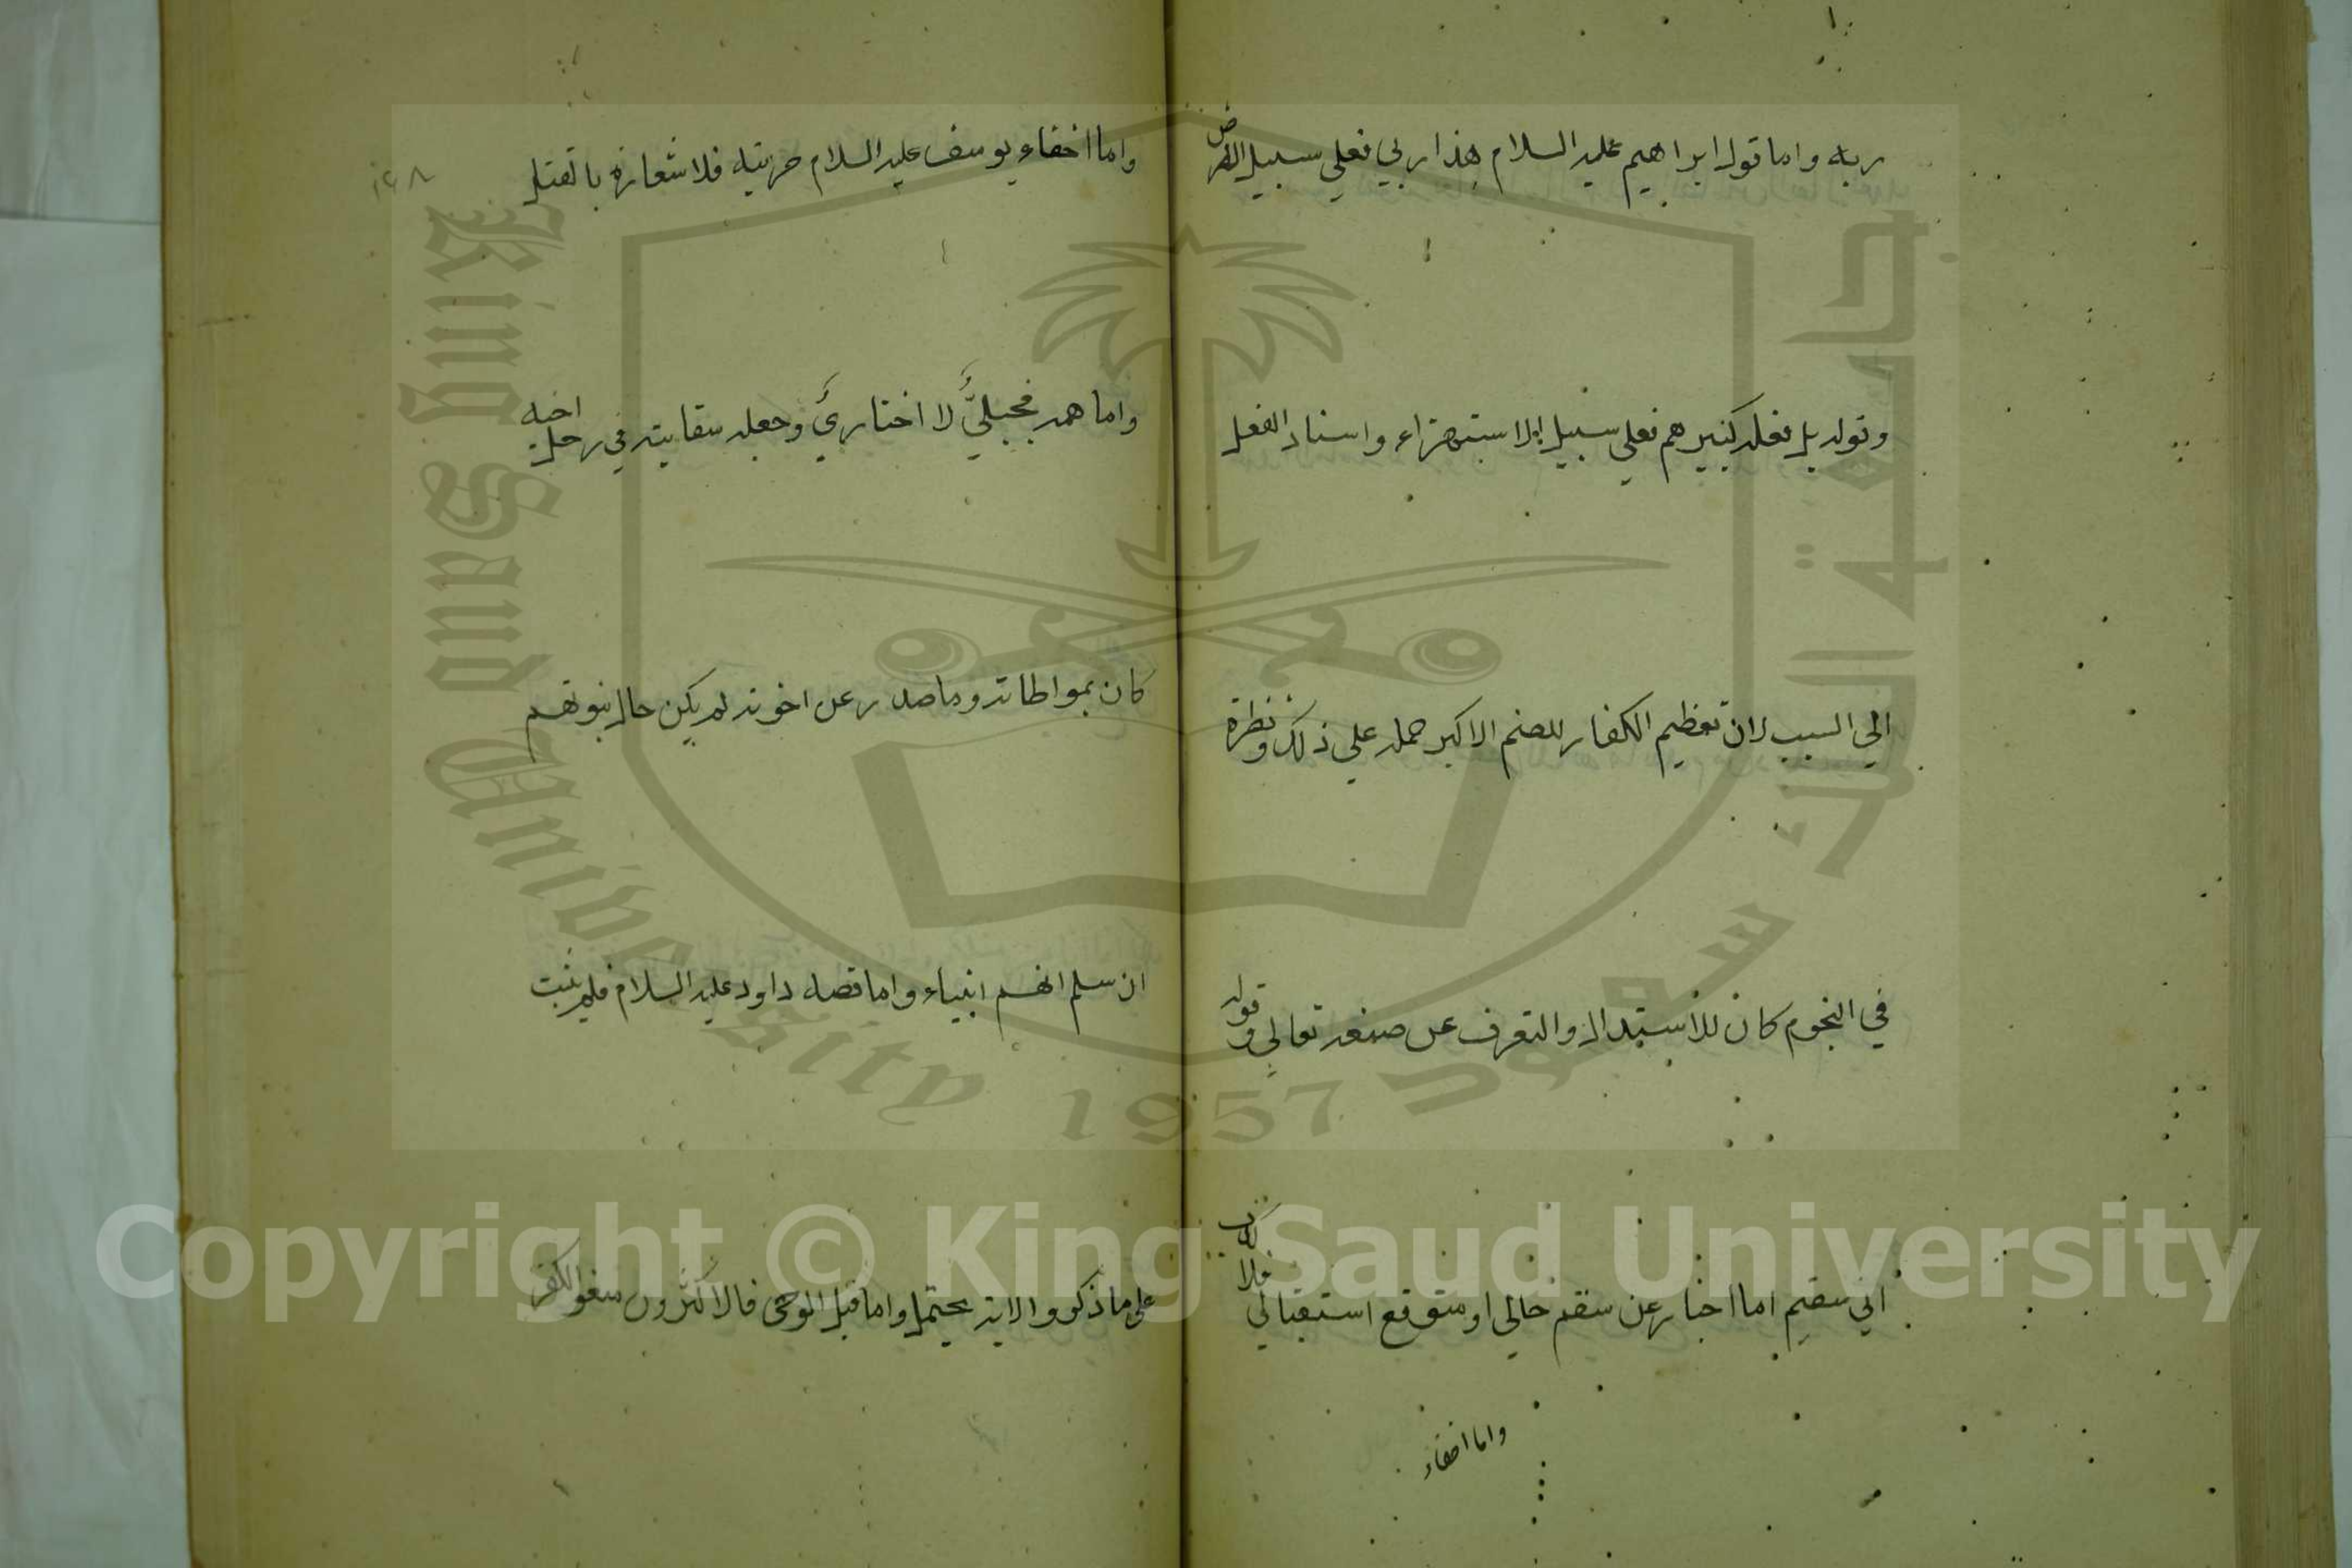 ربه واما قوله ابراهيم عليه السلام هذا ربي فعلي سبيل الفرض
وقوله بل فعله كبيرهم فعلي سبيل الاستهزاء واسناد الفعل
الي السبب لان تعظيم الكفار للصنم الاكبر حمله علي ذلك ونظره
في النجوم كان للاستدلال والتعرف عن صنعه تعالي وقوله
اني سقيم اما اخبار عن سقم حالي او متوقع استقبالي فلا كذب
واما اخفاء
١٤٨
واما اخفاء يوسف عليه السلام حريته فلاشعاره بالقتل
واما همه فجبليّ لا اختياري وجعله سقايته في رحل اخيه
كان بمواطاته وما صدر عن اخوته لم يكن حال نبوتهم
ان سلم انهم انبياء واما قصه داود عليه السلام فلم يثبت
علي ما ذكروا والاية يحتمل واما قبل الوحى فالاكثرون منعوا الكفر
King Saud University
1957
جامعة الملك سعود
Copyright © King Saud University